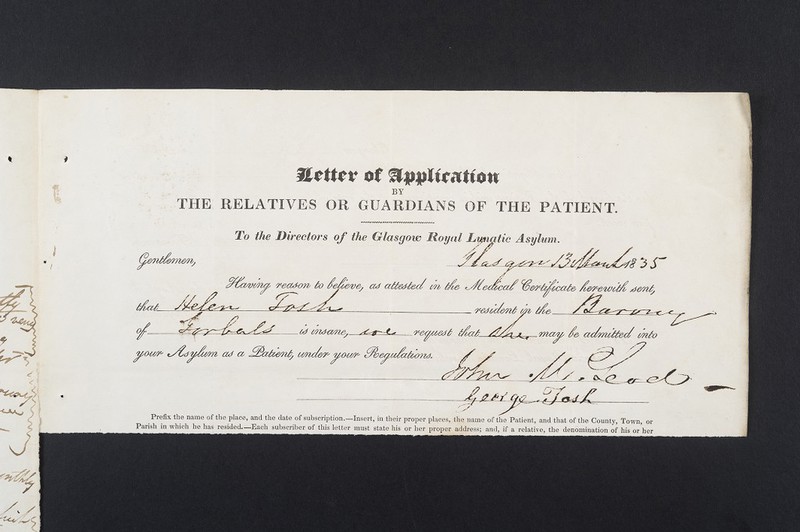 Letter of Application
BY
THE RELATIVES OR GUARDIANS OF THE PATIENT.
To the Directors of the Glasgow Royal Lunatic Asylum.
Glasgow 13 March 1835
Gentlemen,
Having reason to believe, as attested in the Medical Certificate herewith sent,
that Helen Tosh resident in the Barony
of Gorbals is insane, we request that she may be admitted into
your Asylum as a Patient, under your Regulations.
John McLeod
George Tosh
Prefix the name of the place, and the date of subscription.—Insert, in their proper places, the name of the Patient, and that of the County, Town, or
Parish in which he has resided.—Each subscriber of this letter must state his or her proper address; and, if a relative, the denomination of his or her